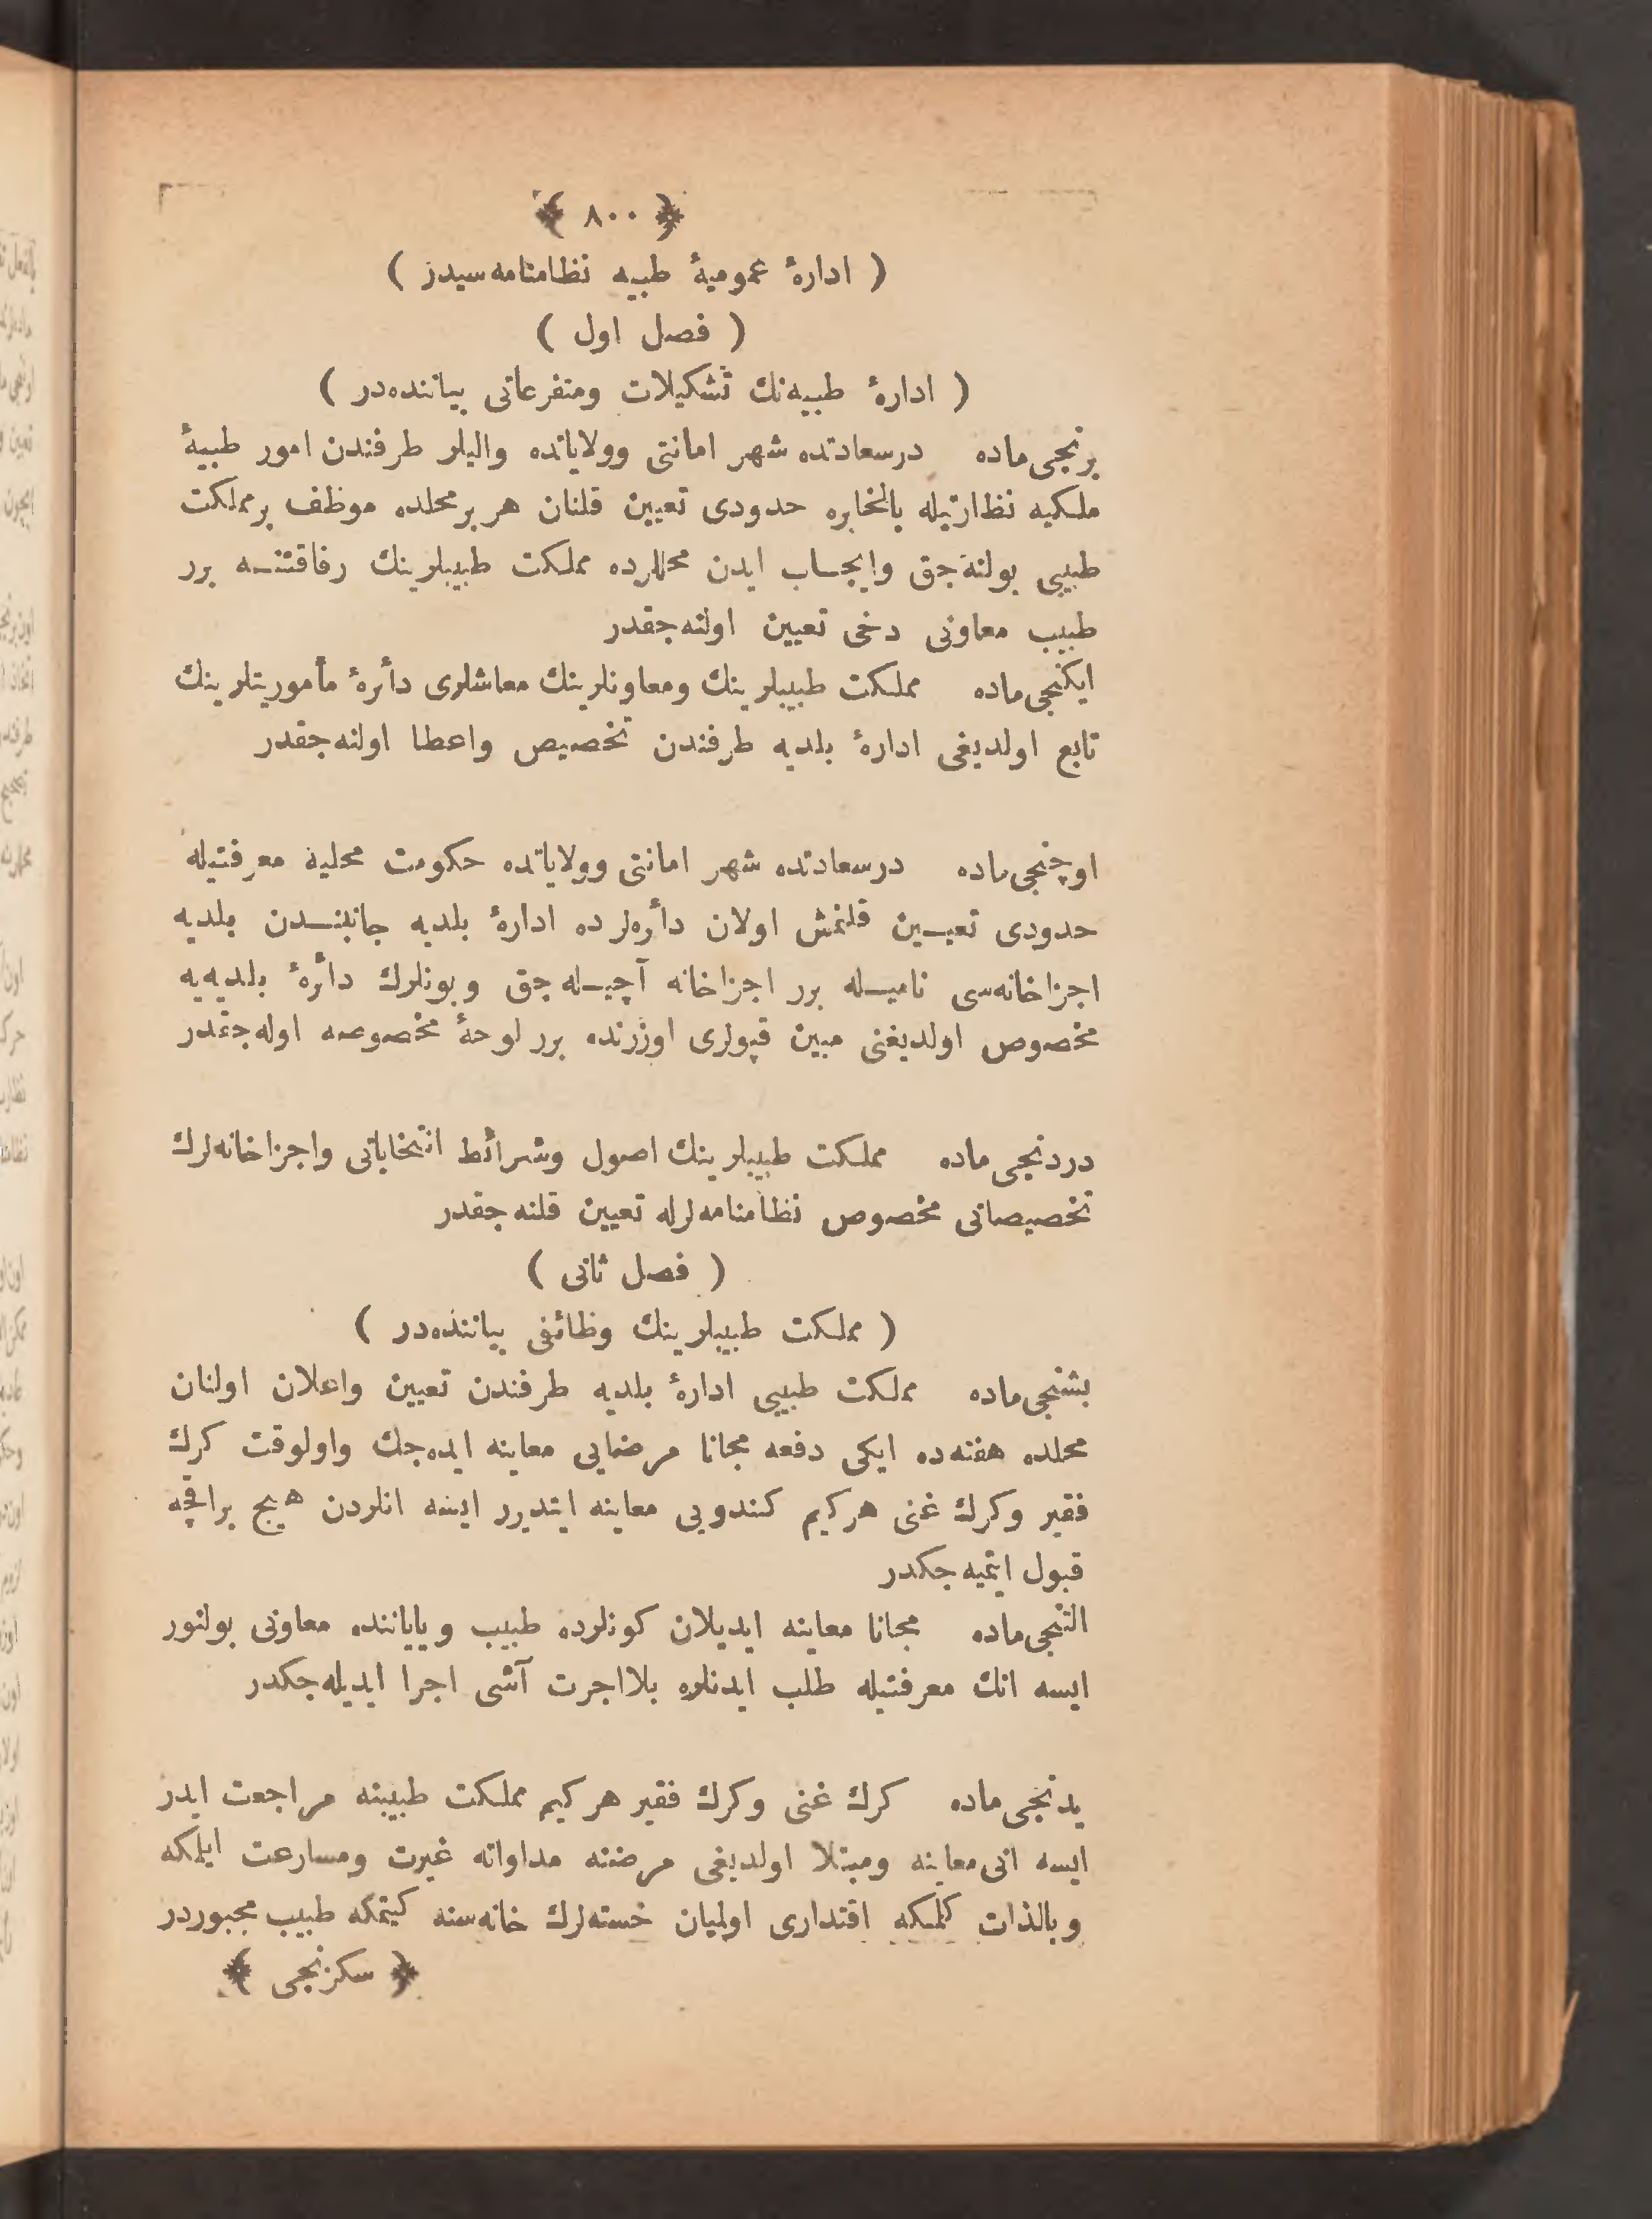 ﴿ ٨٠٠ ﴾
( ادارۀ عموميۀ طبيه نظامنامه‌سيدر )
( فصل اول )
( ادارۀ طبيه‌نك تشكيلات ومتفرعاتى بياننده‌در )
برنجى ماده درسعادتده شهر امانتى وولاياتده واليلر طرفندن امور طبيۀ
ملكيه نظارتيله بالمخابره حدودى تعيين قلنان هر بر محلده موظف بر مملكت
طبيبى بولنه‌جق وايجاب ايدن محللرده مملكت طبيبلرينك رفاقتنه برر
طبيب معاونى دخى تعيين اولنه‌جقدر
ايكنجى ماده مملكت طبيبلرينك ومعاونلرينك معاشلرى دائرۀ مأموريتلرينك
تابع اولديغى ادارۀ بلديه طرفندن تخصيص واعطا اولنه‌جقدر
اوچنجى ماده درسعادتده شهر امانتى وولاياتده حكومت محليه معرفتيله
حدودى تعيين قلنمش اولان دائره‌لرده ادارۀ بلديه جانبندن بلديه
اجزاخانه‌سى ناميله برر اجزاخانه آچيله‌جق وبونلرك دائرۀ بلديه‌يه
مخصوص اولديغنى مبين قپولرى اوزرنده برر لوحۀ مخصوصه اوله‌جقدر
دردنجى ماده مملكت طبيبلرينك اصول وشرائط انتخاباتى واجزاخانه‌لرك
تخصيصاتى مخصوص نظامنامه‌لرله تعيين قلنه‌جقدر
( فصل ثانى )
( مملكت طبيبلرينك وظائفى بياننده‌در )
بشنجى ماده مملكت طبيبى ادارۀ بلديه طرفندن تعيين واعلان اولنان
محلده هفته‌ده ايكى دفعه مجانا مرضايى معاينه ايده‌جك واولوقت كرك
فقير وكرك غنى هركيم كندويى معاينه ايتديرر ايسه انلردن هيچ براقچه
قبول ايتميه‌جكدر
التنجى ماده مجانا معاينه ايديلان كونلرده طبيب وياياننده معاونى بولنور
ايسه انك معرفتيله طلب ايدنلره بلااجرت آشى اجرا ايديله‌جكدر
يدنجى ماده كرك غنى وكرك فقير هركيم مملكت طبيبنه مراجعت ايدر
ايسه انى معاينه ومبتلا اولديغى مرضنه مداواته غيرت ومسارعت ايلمكه
وبالذات كلمكه اقتدارى اولميان خسته‌لرك خانه‌سنه كيتمكه طبيب مجبوردر
﴿ سكزنجى ﴾